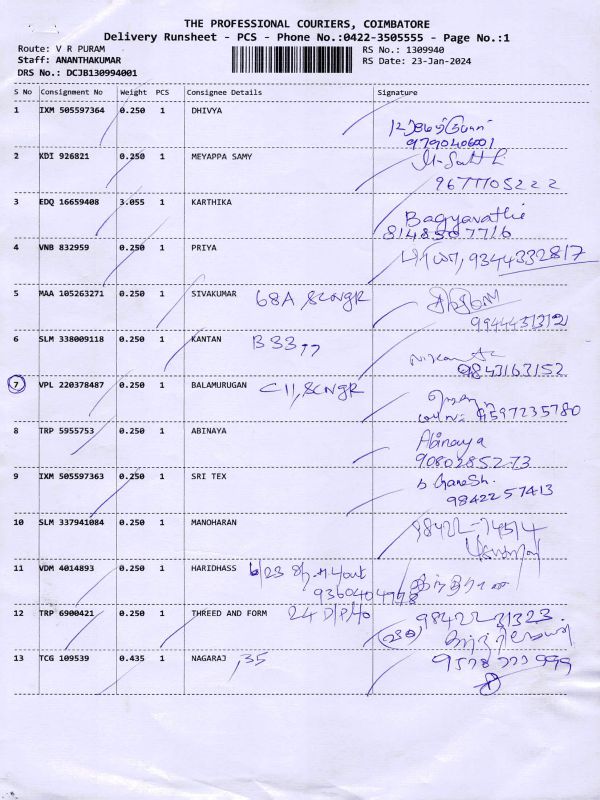 THE PROFESSIONAL COURIERS, COIMBATORE
Delivery Runsheet - PCS - Phone No.:0422-3505555 - Page No.:1
Route: V R PURAM
Staff: ANANTHAKUMAR
DRS No.: DCJB130994001
RS No.: 1309940
RS Date: 23-Jan-2024
S No Consignment No Weight PCS Consignee Details Signature
1 IXM 505597364 0.250 1 DHIVYA
9790406001
2 KDI 926821 0.250 1 MEYAPPA SAMY
9677705222
3 EDQ 16659408 3.055 1 KARTHIKA Bagyavathie
8148507716
4 VNB 832959 0.250 1 PRIYA பிரியா, 9344332817
5 MAA 105263271 0.250 1 SIVAKUMAR 68A, SCNGR
6 SLM 338009118 0.250 1 KANTAN B 33
9843163152
7 VPL 220378487 0.250 1 BALAMURUGAN C11, SCNGR
9597235780
8 TRP 5955753 0.250 1 ABINAYA Abinaya
9080285273
9 IXM 505597363 0.250 1 SRI TEX S Ganesh.
9842257413
10 SLM 337941084 0.250 1 MANOHARAN 98422-74514
11 VDM 4014893 0.250 1 HARIDHASS
9360404978
12 TRP 6900421 0.250 1 THREED AND FORM 24 98422-31323
13 TCG 109539 0.435 1 NAGARAJ 35 9578777999